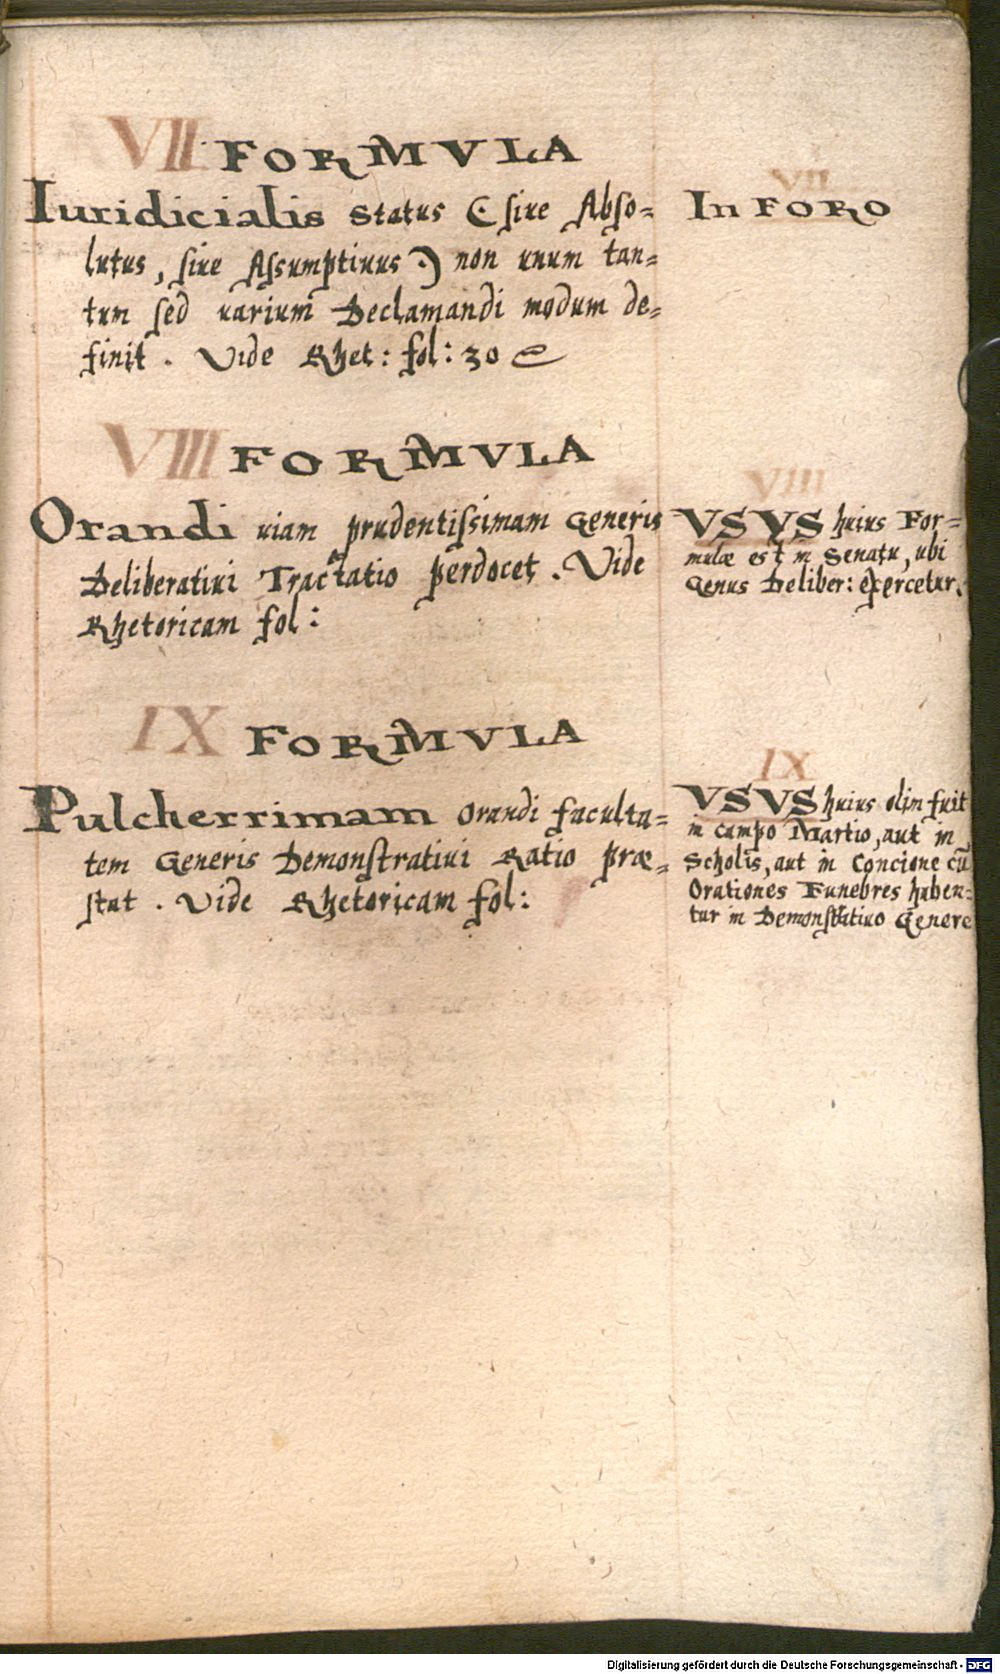 VII FORMVLA
Iuridicialis Status (siue Abso=
lutus, siue Assumptiuus.) non unum tan=
tum sed uarium Declamandi modum de=
finit. Vide Rhet: fol: 30
VII
In FORO
VIII FORMVLA
Orandi uiam prudentissimam Generis
Deliberatiui Tractatio perdocet. Vide
Rhetoricam fol:
VIII
VSVS huius For=
mulæ est in Senatu, ubi
Genus Deliber: exercetur.
IX FORMVLA
Pulcherrimam Orandi faculta=
tem Generis Demonstratiui Ratio præ=
stat. Vide Rhetoricam fol:
IX
VSVS huius olim fuit
in campo Martio, aut in
Scholis, aut in Concione cū
Orationes Funebres haben=
tur in Demonstratiuo Genere
Digitalisierung gefördert durch die Deutsche Forschungsgemeinschaft - DFG